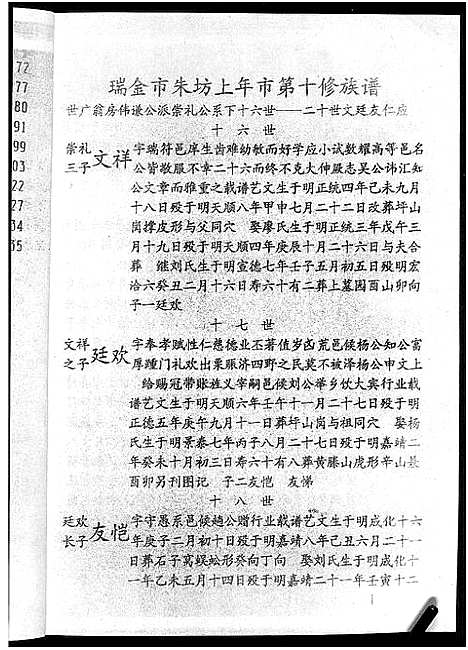 72
77
80
91
99
03
22
27
35
瑞金市朱坊上年市第十修族谱
世广翁房伟谦公派崇礼公系下十六世——二十世文廷友仁应
十六世
崇礼三子 文祥
字瑞符邑庠生齿难幼敏而好学应小试数耀高等邑名
公皆敬服不幸二十六而终不克大伸殿志吴公讳汇知
公文章而雅重之载谱艺文生于明正统四年己未九月
十八日殁于明天顺八年甲申七月二十二日改葬坪山
岗撑皮形与父同穴 娶廖氏生于明正统三年戊午三
月十九日殁于明天顺四年庚辰十月二十六日与夫合
葬 继刘氏生于明宣德七年壬子五月初五日殁于明宏
治六癸丑二月十六日寿六十有二葬上墓园酉山卯向
子一廷欢
十七世
文祥之子 廷欢
字奉孝赋性仁慈德业丕著值岁凶荒邑侯杨公知公富
厚踵门礼欢出粟赈济四野之民莫不被泽杨公申文上
给赐冠带账旌义宰嗣邑侯刘公举乡饮大宾行业载
谱艺文生于明天顺六年壬午十一月二十七日殁于明
正德五年庚午九月十一日葬坪山岗与祖同穴 娶杨
氏生于明景泰七年丙子八月二十七日殁于明嘉靖二
年癸未十月初三日寿六十有八葬黄藤山虎形辛山兼
酉卯另刊图记 子二友恺 友悌
十八世
廷欢长子 友恺
字守愚系邑候赵公赠行业载谱艺文生于明成化十六
年庚子二月初十日殁于明嘉靖八年己丑六月二十一
日葬石子窝蜈蚣形癸向丁向 娶刘氏生于明成化十
一年乙未五月十四日殁于明嘉靖二十一年壬寅十二
1